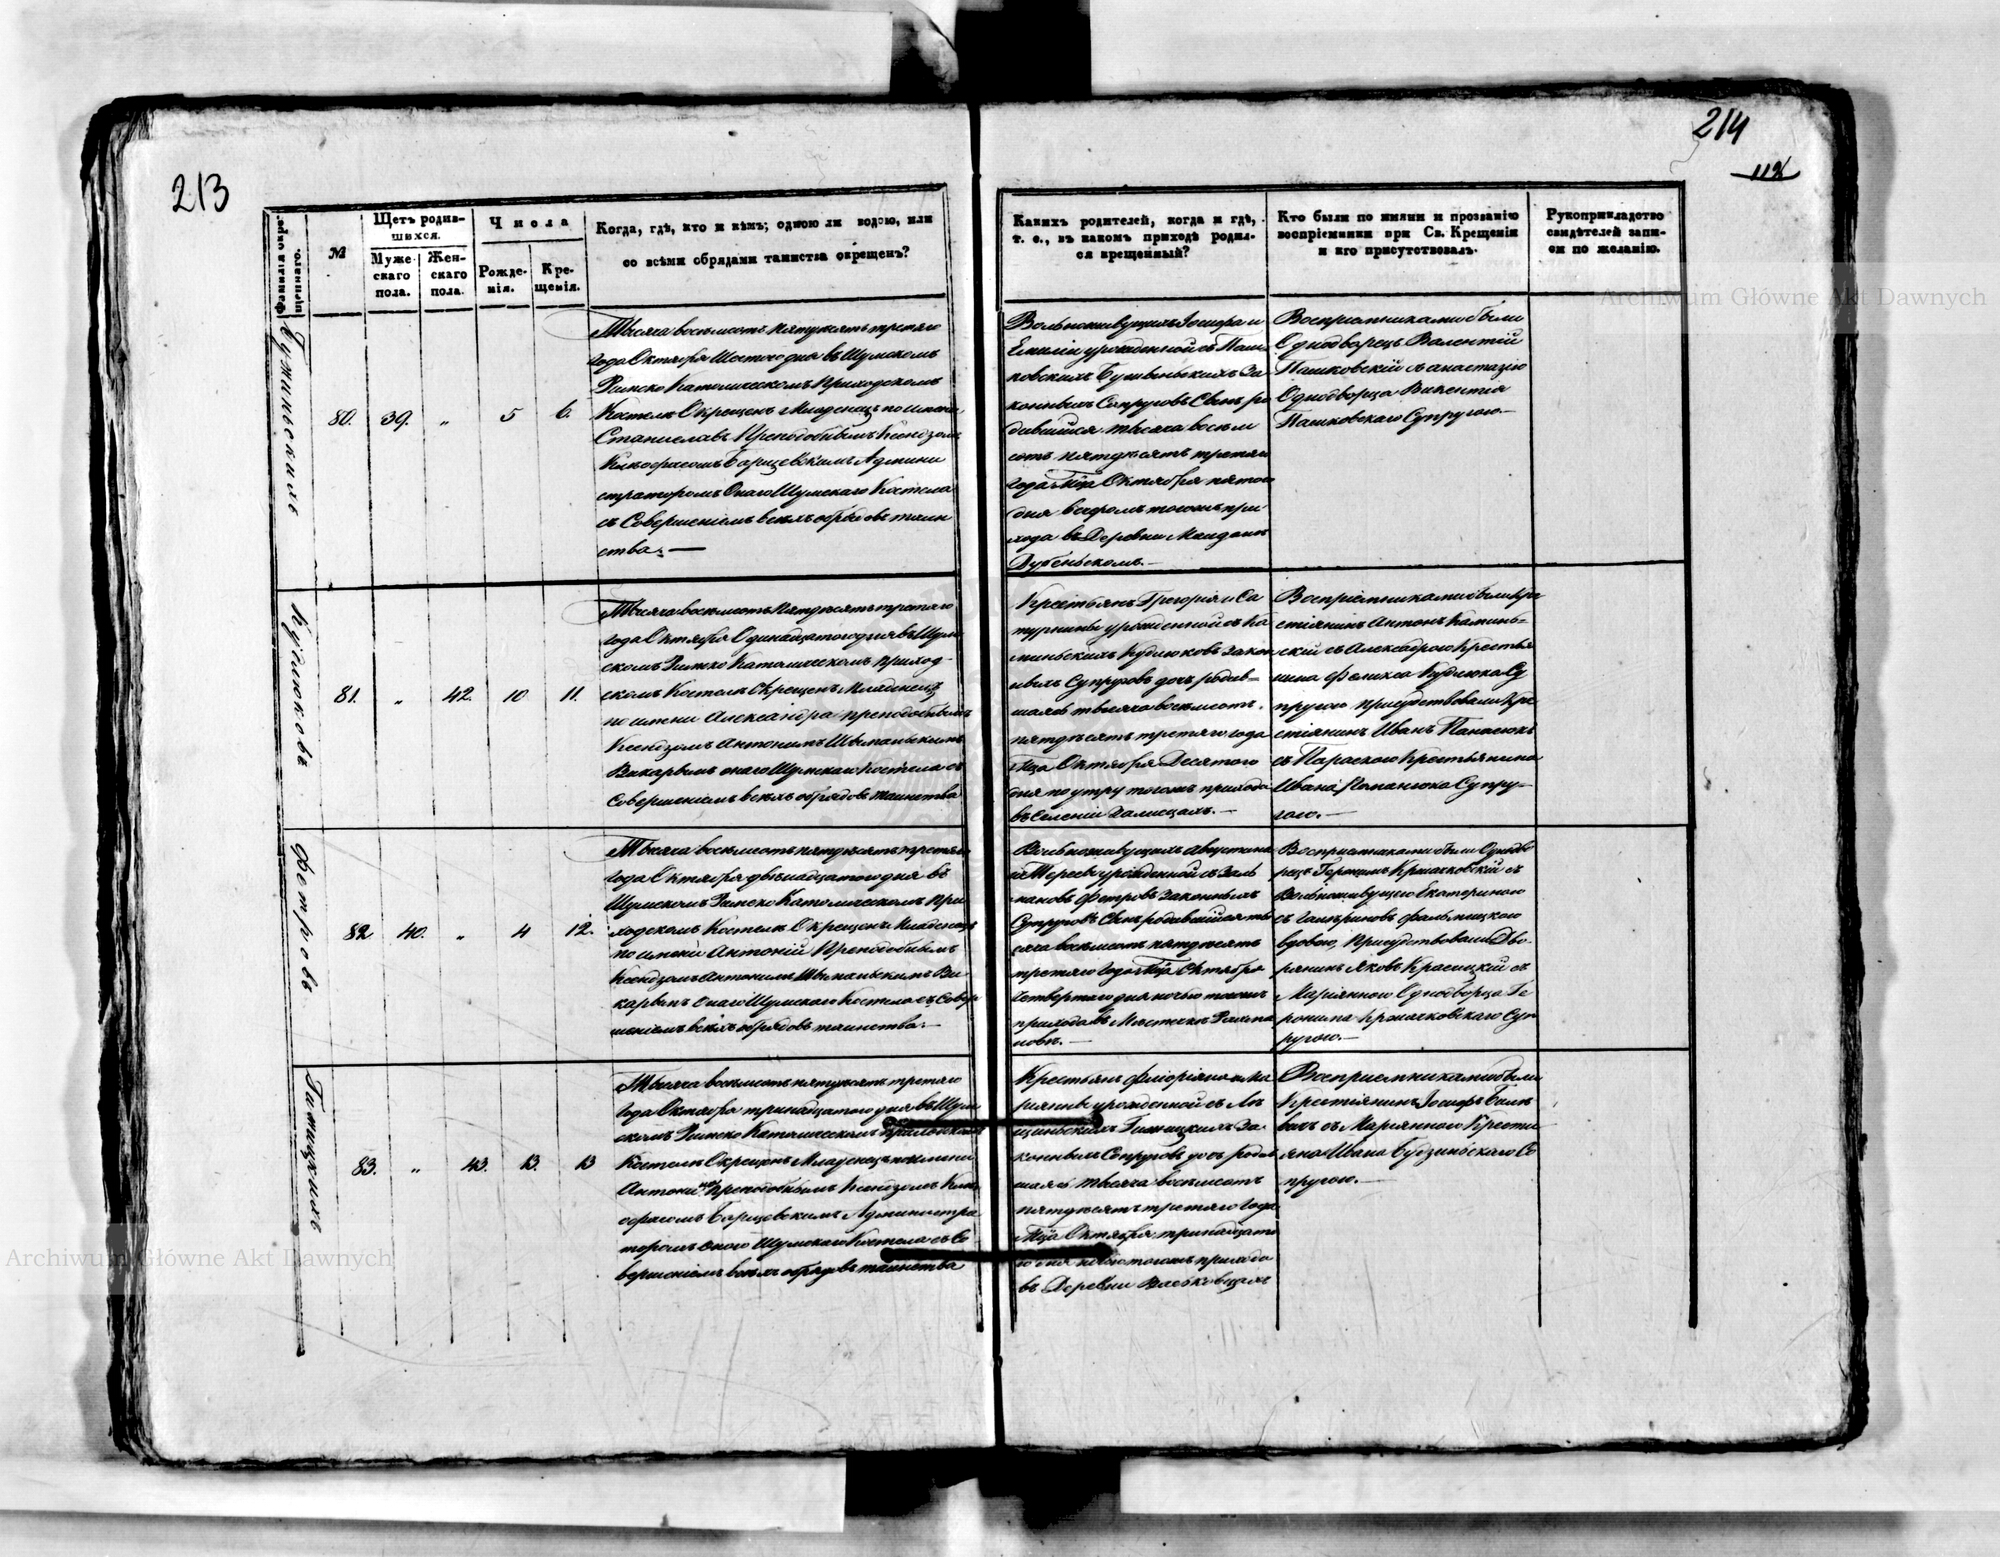 213
214
112
фамилія окрещеннаго.
№
Щетъ родив-
шихся.
Муже-
скаго
пола.
Жен-
скаго
пола.
Числа
Рожде-
нія.
Кре-
щенія.
Когда, гдѣ, кто и кѣмъ; одною ли водою, или
со всѣми обрядами таинства окрещенъ?
Каких родителей, когда и гдѣ,
т. е., въ какомъ приходѣ родил-
ся крещенный?
Кто были по имяни и прозванію
воспріемники при Св. Крещеніи
и кто присутствовалъ.
Рукоприкладство
свидѣтелей запи-
си по желанію.
80.
39.
„
5
6.
Тысяча восемьсотъ пятдесятъ третяго
года Октября Шестого дня въ Шумскомъ
Римско Католическомъ Приходскомъ
Костелѣ Окрещенъ Младенецъ по имени
Станиславъ Преподобнымъ Ксендзомъ
Барщевскимъ Админи
страторомъ Онаго Шумскаго Костела
съ Совершеніемъ всѣхъ обрядовъ таин
ства. —
Вольноживущихъ Іосифа и
Емиліи урожденной съ Паш
ковскихъ За
конныхъ Супруговъ Сынъ ро
дившійся тысяча восемь
сотъ пятдесятъ третяго
года Мца Октября пятого
дня тогожъ при
хода въ Деревни Майдан
Дубенском. —
Воспріемниками были
Однодворецъ Валентій
Пашковскій съ анастазіею
Однодворца Викентія
Пашковскаго Супругою. —
Кудлюковъ
81.
„
42.
10
11.
Тысяча восемьсотъ пятдесятъ третяго
года Октября Одинадцатого дня въ Шум
скомъ Римско Католическомъ приход-
скомъ Костелѣ Окрещенъ Младенецъ
по имени Александра преподобнымъ
Ксендзомъ Антонимъ
Викарымъ онаго Шумскаго Костела съ
Совершеніемъ всѣхъ обрядовъ таинства
Крестьянъ Григорія и Са
турнины урожденной съ Ка
миньскихъ Кудлюковъ закон
ныхъ Супруговъ дочь родив-
шаяся тысяча восемьсотъ
пятдесятъ третяго года
Мца Октября Десятого
дня по утру тогожъ прихода
въ Селеніи —
Воспріемниками были Кре
стіянинъ Антонъ Каминь-
скій съ Александрою Крестья
нина Феликса Кудлюка Су
пругою Присудствовали Кре
стіянинъ Иванъ Панасюкъ
съ Параскою Крестьянина
Ивана Супру-
гою. —
Фетровъ
82
40.
„
4
12.
Тысяча восемьсотъ пятдесятъ третяго
года Октября двѣнадцатого дня въ
Шумскомъ Римско Католическомъ При
ходскомъ Костелѣ Окрещенъ Младенецъ
по имени Антоній Преподобнымъ
Ксендзомъ Антонимъ Ви
карымъ Онаго Шумскаго Костела съ Совер
шеніемъ всѣхъ обрядовъ таинства. —
Вольноживущихъ Августина
и Терезы урожденной съ
Фетровъ Законныхъ
Супруговъ Сынъ родившійся ты
сяча восемьсотъ пятдесятъ
третяго года Мца Октября
Четвертого дня ночью тогожъ
прихода въ Мѣстечкѣ Рахма
новѣ. —
Воспріемниками были Однодво
рецъ Геронимъ съ
Вольноживущею Екатериною
вдовою, Присудствовали Дво-
рянинъ Яковъ Красицкій съ
Маріянною Однодворца Ге
ронима Суп
ругою. —
83.
„
43.
13.
13
Тысяча восемьсотъ пятдесятъ третяго
года Октября тринадцатого дня въ Шум
скомъ Римско Католическомъ приходскомъ
Костелѣ Окрещенъ Младенецъ по имени
Антонина Преподобнымъ Ксендзомъ
Барщевскимъ Администра
торомъ Онаго Шумскаго Костела съ Со
вершеніемъ всѣхъ обрядовъ таинства
Крестьянъ Флоріяна и Ма
рянны урожденной съ
За
конныхъ Супруговъ дочь родив
шаяся тысяча восемьсотъ
пятдесятъ третяго года
Мца Октября тринадцато
го дня тогожъ прихода
въ Деревни Васьковцахъ
Воспріемниками были
Крестіянинъ Іосифъ
съ Маріянною Крести
яна Ивана Будзиньскаго Су
пругою. —
Archiwum Główne Akt Dawnych
Archiwum Główne Akt Dawnych